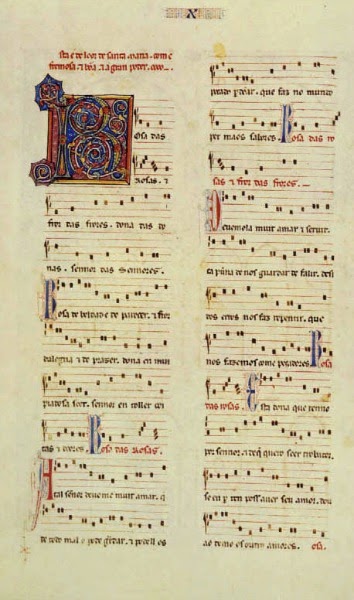 X
sta e de loor de santa maria. com e
fremosa e bõa e a gran poder.
Rosa das
Rosas. e
fror das frores. dona das do
nas. sennor das sennores.
Rosa de beldade de parecer. e fror
dalegria e de prazer. dona en mui
piadosa seer. sennor en toller coi
tas e doores. Rosa das Rosas.
Atal señor deue ome muit amar. q
de todo mal o pode gũardar. e pode ll es
pecados perdõar. que faz no mundo
per maos sabores. Rosa das ro
sas e fror das frores.
Deuemola muit amar e seruir.
ca pũna de nos guardar de falir. desi
dos erros nos faz repentir. que
nos fazemos come pecadores. Rosa
das rosas. Esta dona que tenno
por sennor. e de q̃ quero seer trobador.
se eu per ren poss auer seu amor. dou
ao demo os outros amores. osa.